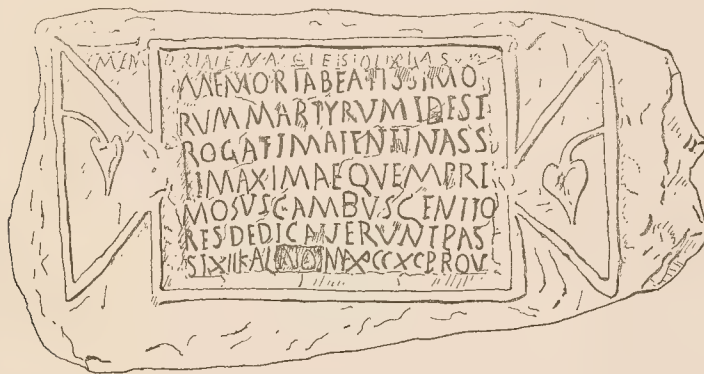 MEMORIABEATISSIMO
RVMMARTYRVMIDEST
ROGATIMATENTINASS
IMAXIMAEQVEMPRI
MOSVSCAMBVSGENITO
RESDEDICAVERVNTPAS
SIXIIKAL NO MAPCCXCPROV